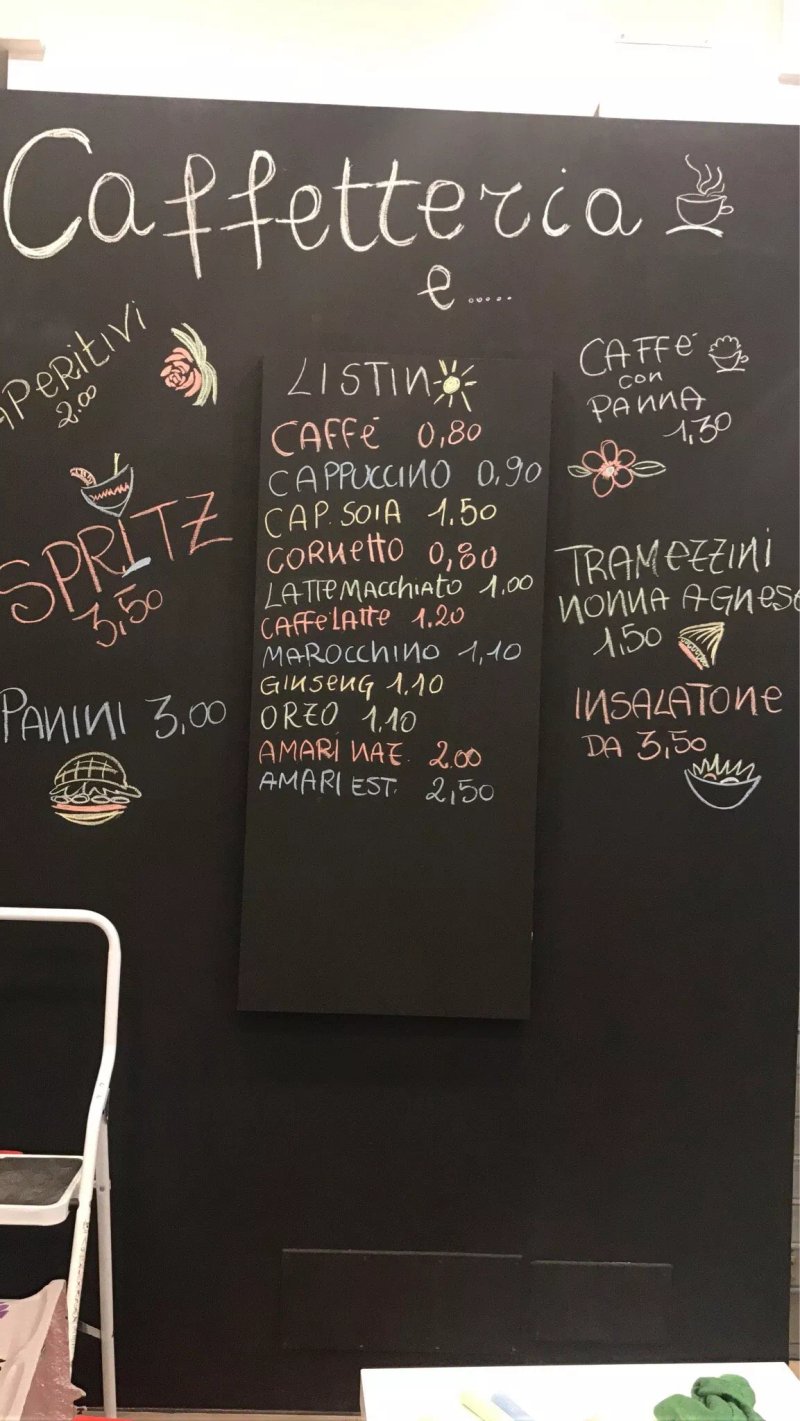 Caffetteria
e.....
APERITIVI
2.00
SPRITZ
3,50
PANINI 3,00
LISTINO
CAFFÈ 0,80
CAPPUCCINO 0,90
CAP. SOIA 1.50
CORNETTO 0,80
LATTE MACCHIATO 1.00
CAFFELATTE 1.20
MAROCCHINO 1,10
GINSENG 1,10
ORZO 1,10
AMARI NAZ. 2.00
AMARI EST. 2,50
CAFFE'
CON
PANNA
1,30
TRAMEZZINI
NONNA AGNESE
1,50
INSALATONE
DA 3,50